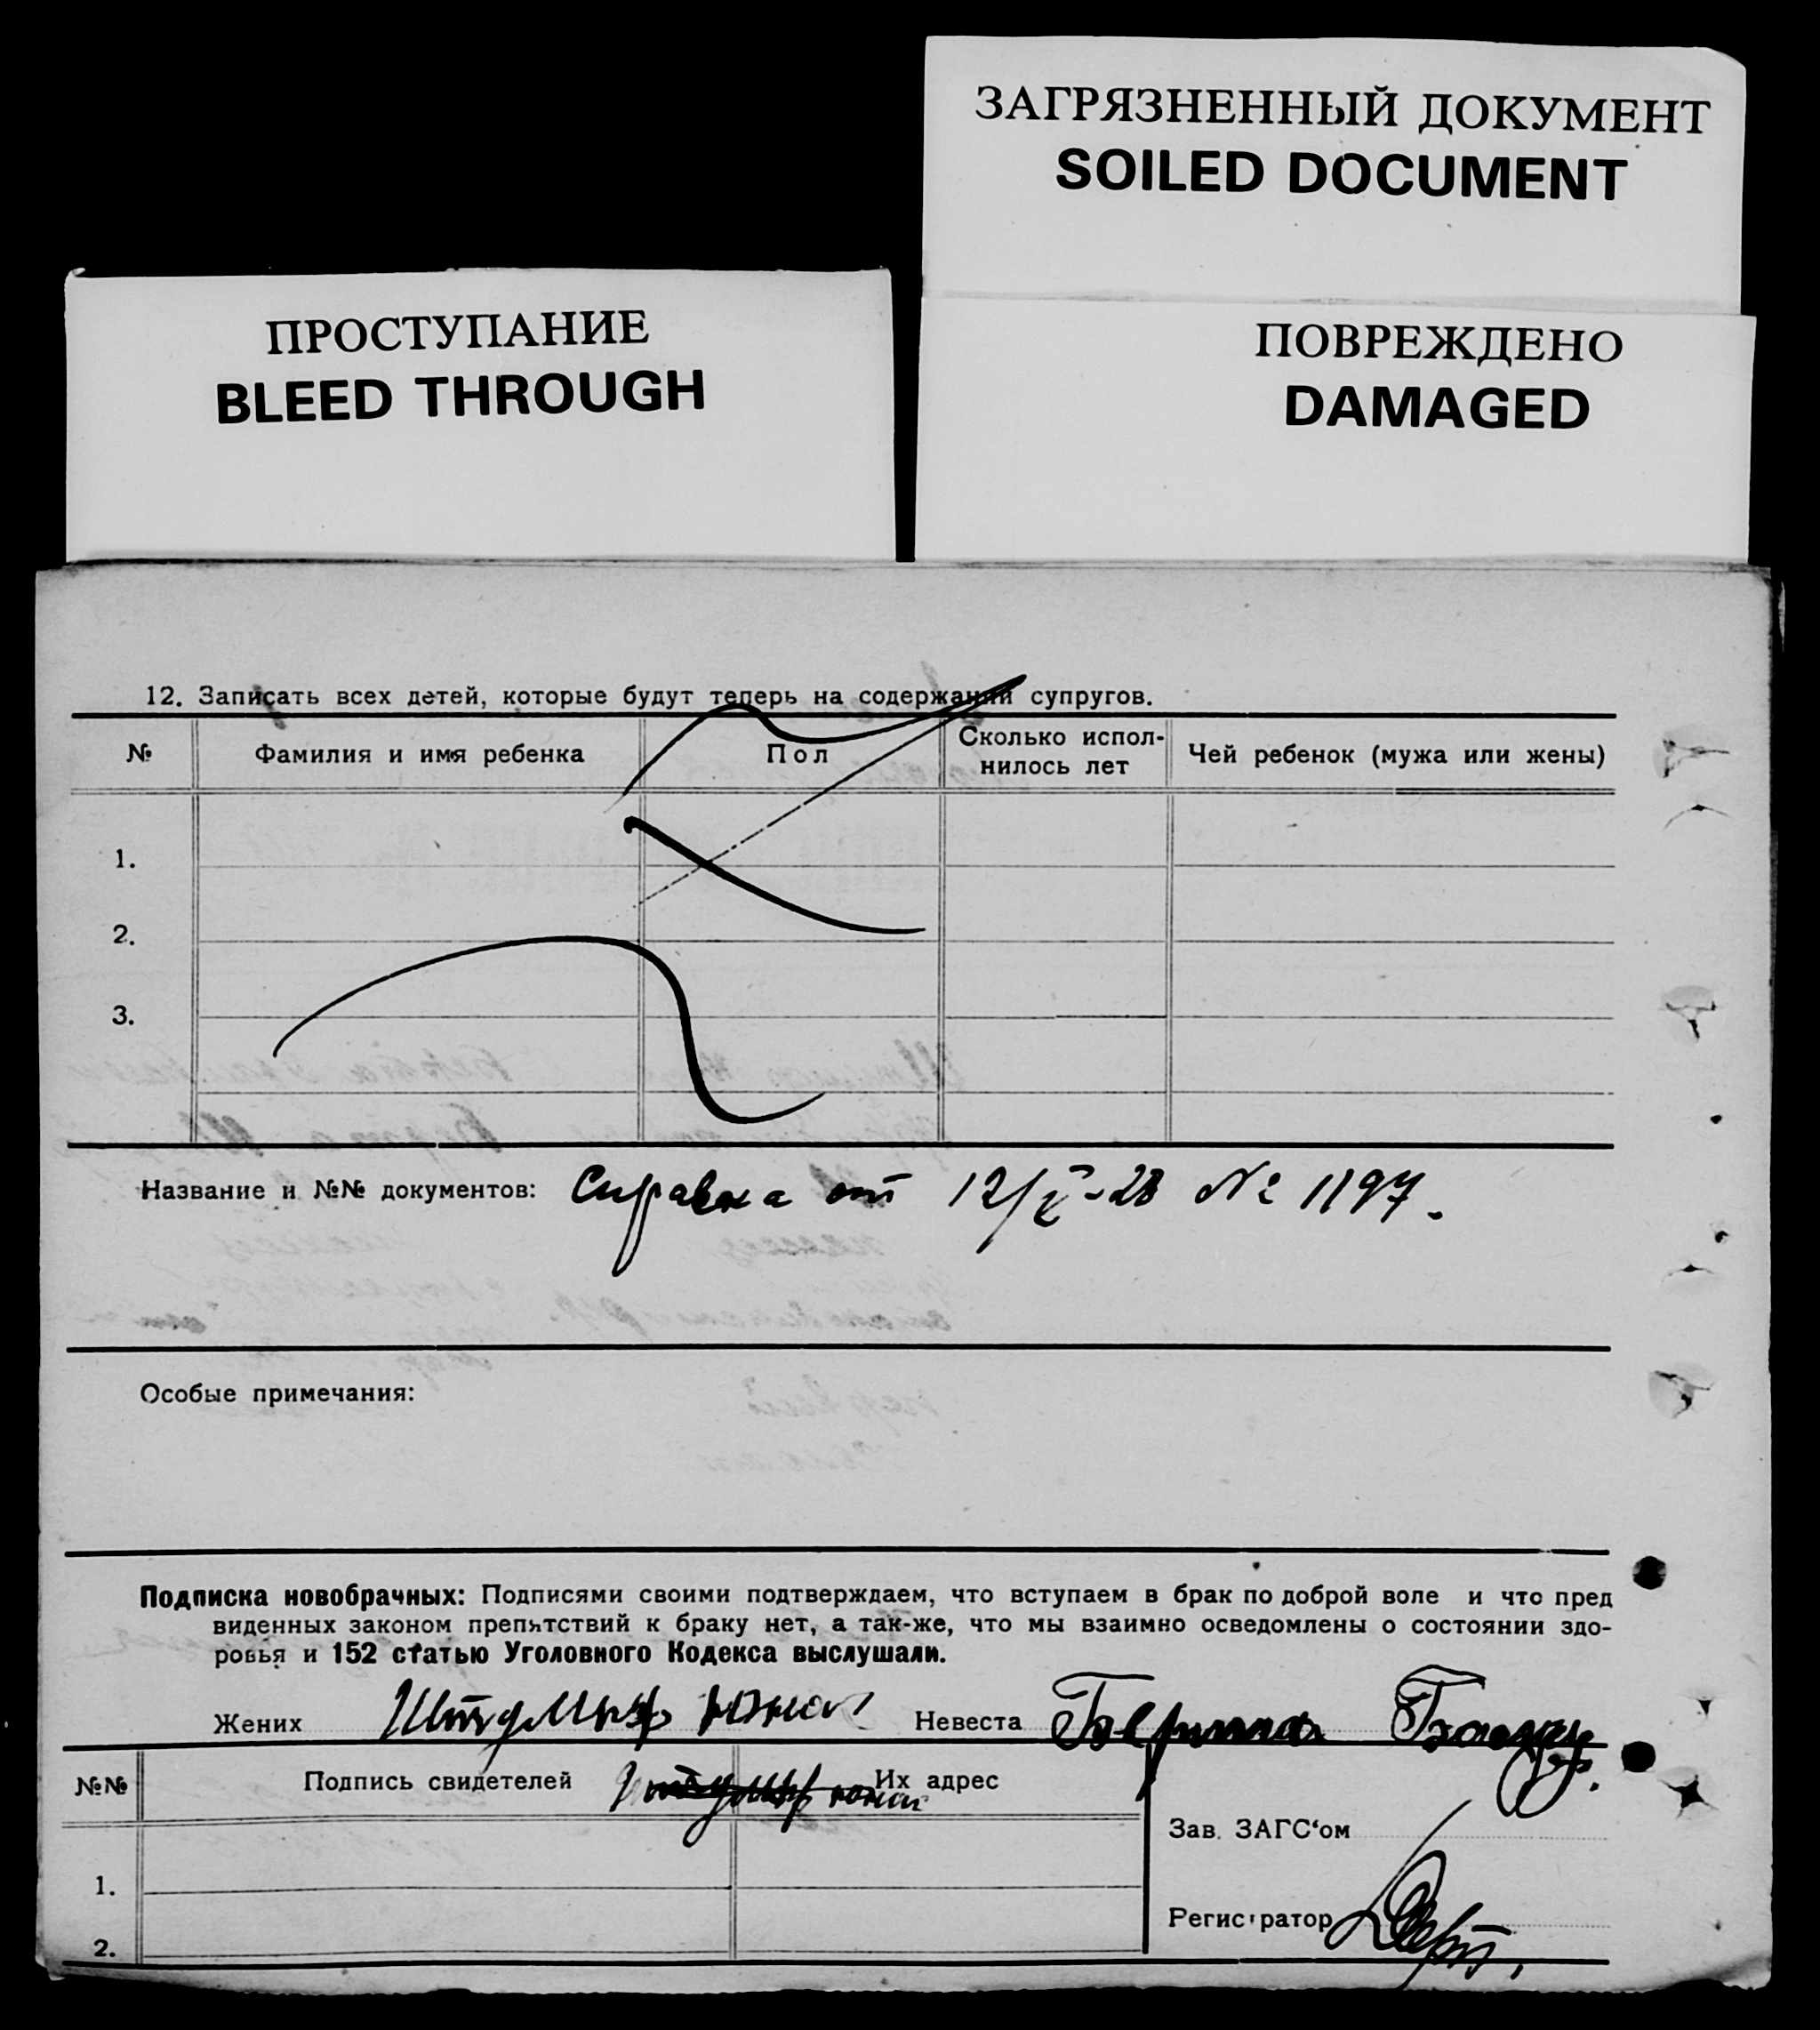 ЗАГРЯЗНЕННЫЙ ДОКУМЕНТ
SOILED DOCUMENT
ПРОСТУПАНИЕ
BLEED THROUGH
ПОВРЕЖДЕНО
DAMAGED
12. Записать всех детей, которые будут теперь на содержании супругов.
№ Фамилия и имя ребенка Пол Сколько испол-
нилось лет Чей ребенок (мужа или жены)
1.
2.
3.
Название и №№ документов: Справка от 12/X-28 № 1197.
Особые примечания:
Подписка новобрачных: Подписями своими подтверждаем, что вступаем в брак по доброй воле и что пред
виденных законом препятствий к браку нет, а так-же, что мы взаимно осведомлены о состоянии здо-
ровья и 152 статью Уголовного Кодекса выслушали.
Жених Невеста Берта
№№ Подпись свидетелей Их адрес
Зав. ЗАГС‘ом
1.
Регистратор
2.